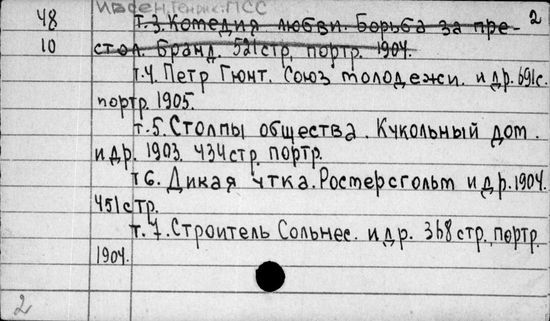 Ибсен, Генрик. ПСС
2
48 т.3. Комедия любви. Борьба за пре-
10 стол. Бранд. 521стр. портр. 1904.
т.4. Петр Гюнт. Союз молодежи. и др. 691с.
портр. 1905.
т.5. Столпы общества. Кукольный дом.
и др. 1903. 434стр. портр.
т6. Дикая утка. Ростерсгольм и др. 1904.
451стр.
т.7. Строитель Сольнес. и др. 368 стр. портр.
1904.
2